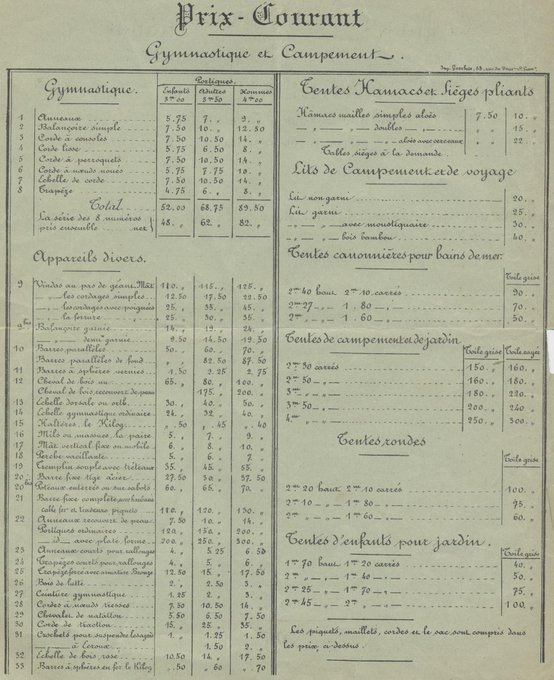 Prix-Courant
Gymnastique et Campement.
Gymnastique.
Portiques.
Enfants Adultes Hommes
3m00 3m50 4m00
1 Anneaux 5.75 7. „ 9. „
2 Balançoire simple 7.50 10. „ 12.50
3 Corde à consoles 7.50 10.50 14. „
4 Corde lisse 5.75 6.50 8. „
5 Corde à perroquets 7.50 10.50 14. „
6 Corde à nœuds noués 5.75 7.75 10. „
7 Echelle de corde 7.50 10.50 14. „
8 Trapèze 4.75 6. „ 8. „
Total 52.00 68.75 89.50
La série des 8 numéros
pris ensemble net 48. „ 62. „ 82. „
Appareils divers.
9 Vindas au pas de géant. Mât 110. „ 115. „ 125. „
„ „ les cordages simples 12.50 17.50 22.50
„ „ les cordages avec poignées 25. „ 35. „ 45. „
„ „ la ferrure 25. „ 30. „ 35. „
9 bis Balançoire garnie 14. „ 19. „ 24. „
„ demi garnie 9.50 14.50 19.50
10 Barres parallèles 50. „ 60. „ 70. „
Barres parallèles de fond „ 82.50 87.50
11 Barres à sphères vernies 1.50 2.25 2.75
12 Cheval de bois nu 65. „ 80. „ 100. „
Cheval de bois, recouvert de peau 175. „ 200. „
13 Echelle dorsale ou orth. 30. „ 40. „ 50. „
14 Echelle gymnastique ordinaire 24. „ 32. „ 40. „
15 Haltères, le Kilog. „ .50 „ .45 „ .40
16 Mils ou massues, la paire 5. „ 7. „ 9. „
17 Mât vertical fixe ou mobile 6. „ 8. „ 10. „
18 Perche vacillante 5. „ 6. „ 7. „
19 Tremplin souple avec tréteaux 35. „ 45. „ 55. „
20 Barre fixe tige acier 27.50 30. „ 37.50
20 bis Poteaux enterrés ou sur sabots 60. „ 65. „ 70. „
21 Barre fixe complète avec haubans
cable fer et tendeurs piquets 110. „ 120. „ 130. „
22 Anneaux recouvert de peau 7.50 10. „ 14. „
Portiques ordinaires 120. „ 150. „ 200. „
_ id _ avec plate forme 200. „ 250. „ 300. „
23 Anneaux courts pour rallonges 4. „ 5.25 6.50
24 Trapèzes courts pour rallonges 4. „ 5. „ 6. „
25 Trapèze fixe avec armature Bronze 12.50 15. „ 17.50
26 Bois de lutte 2. „ 2.50 3. „
27 Ceinture gymnastique 1.25 2. „ 3. „
28 Cordes à nœuds tressés 7.50 10.50 14. „
29 Chevalet de natation 5.50 6.50 7.50
30 Corde de traction 15. „ 25. „ 35. „
31 Crochets pour suspendre les agrès 1. „ 1.25 1.50
„ à Ecrous 1.50 2. „
32 Echelle de bois, rosé 10.50 14. „ 17.50
33 Barres à sphères en fer le Kilog „ .50 „ .60 „ .70
Tentes Hamacs et Sièges pliants
Hamacs mailles simples aloès 7.50 10. „
„ „ doubles „ 15. „
„ „ aloès avec verceaux „ 22. „
Tables sièges à la demande
Lits de Campement et de voyage
Lit non garni 20. „
Lit garni 25. „
„ „ avec moustiquaire 30. „
„ „ bois bambou 40. „
Tentes canonnières pour bains de mer.
Toile grise
2m 40 haut 2m 10 carrés 90. „
2m 27 „ 1.80 „ 70. „
2m „ 1.60 „ 50. „
Tentes de campement et de jardin
Toile grise Toile rayée
2m 30 carrés 150. „ 160. „
2m 50 „ 160. „ 180. „
3m „ 180. „ 220. „
3m 50 „ 200. „ 240 „
4m „ 250. „ 300. „
Tentes rondes
Toile grise
2m 20 haut 2m 10 carrés 100. „
2m 10 „ 1m 80 „ 75. „
2m „ 1m 60 „ 60. „
Tentes d'enfants pour jardin.
Toile grise
1m 70 haut 1m 20 carrés 40. „
2m „ 1m 40 „ 50. „
2m 25 „ 1m 70 „ 75. „
2m 45 „ 2m „ 100. „
Les piquets, maillets, cordes et le sac sont compris dans
les prix ci-dessus.